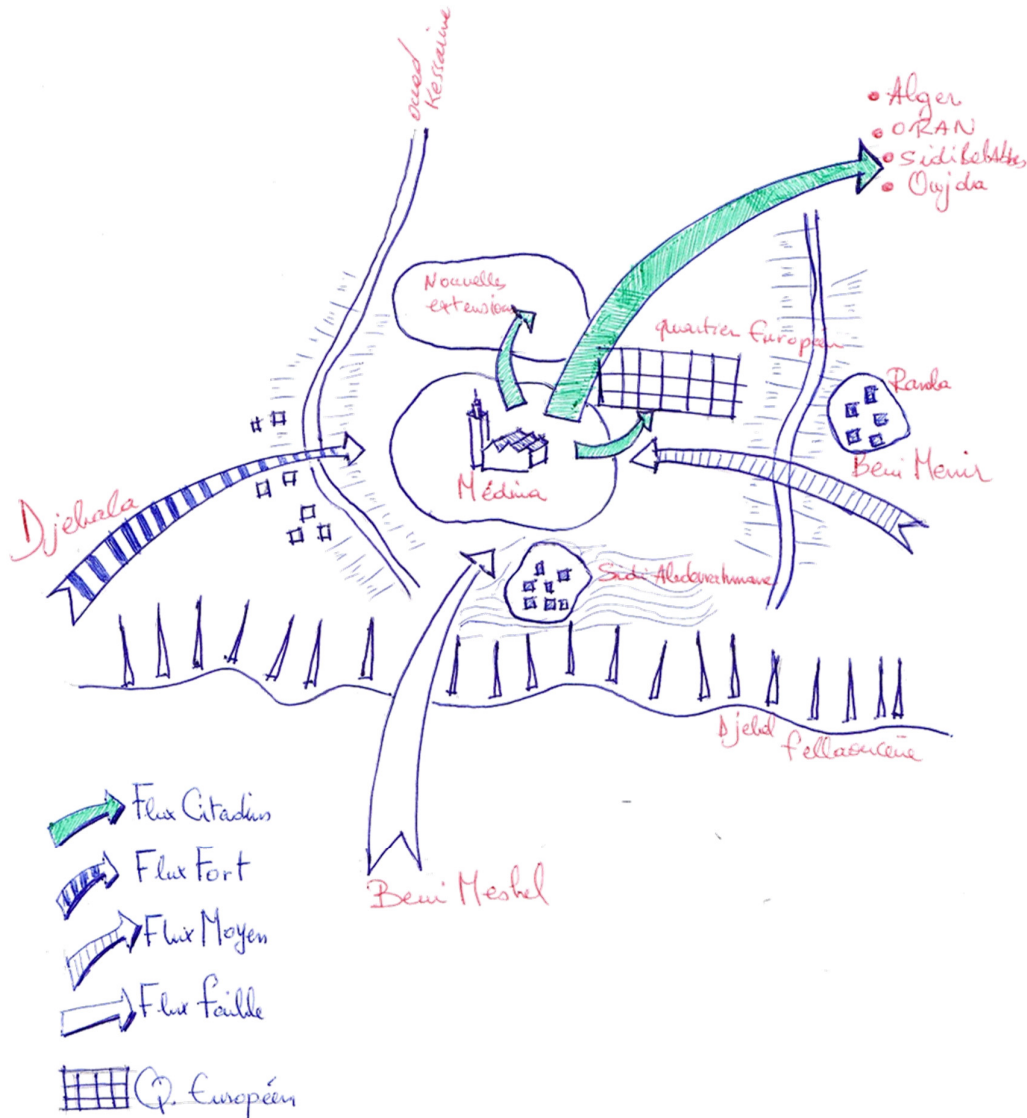 oued
Kessarine
• Alger
• ORAN
• Sidi Bel Abbes
• Oujda
Nouvelles
extension
quartier Européen
Randa
Beni Menir
Médina
Djebala
Sidi Abderrahmane
Djebel
fellaoucène
Beni Meshel
Flux Citadins
Flux Fort
Flux Moyen
Flux faible
Q. Européen